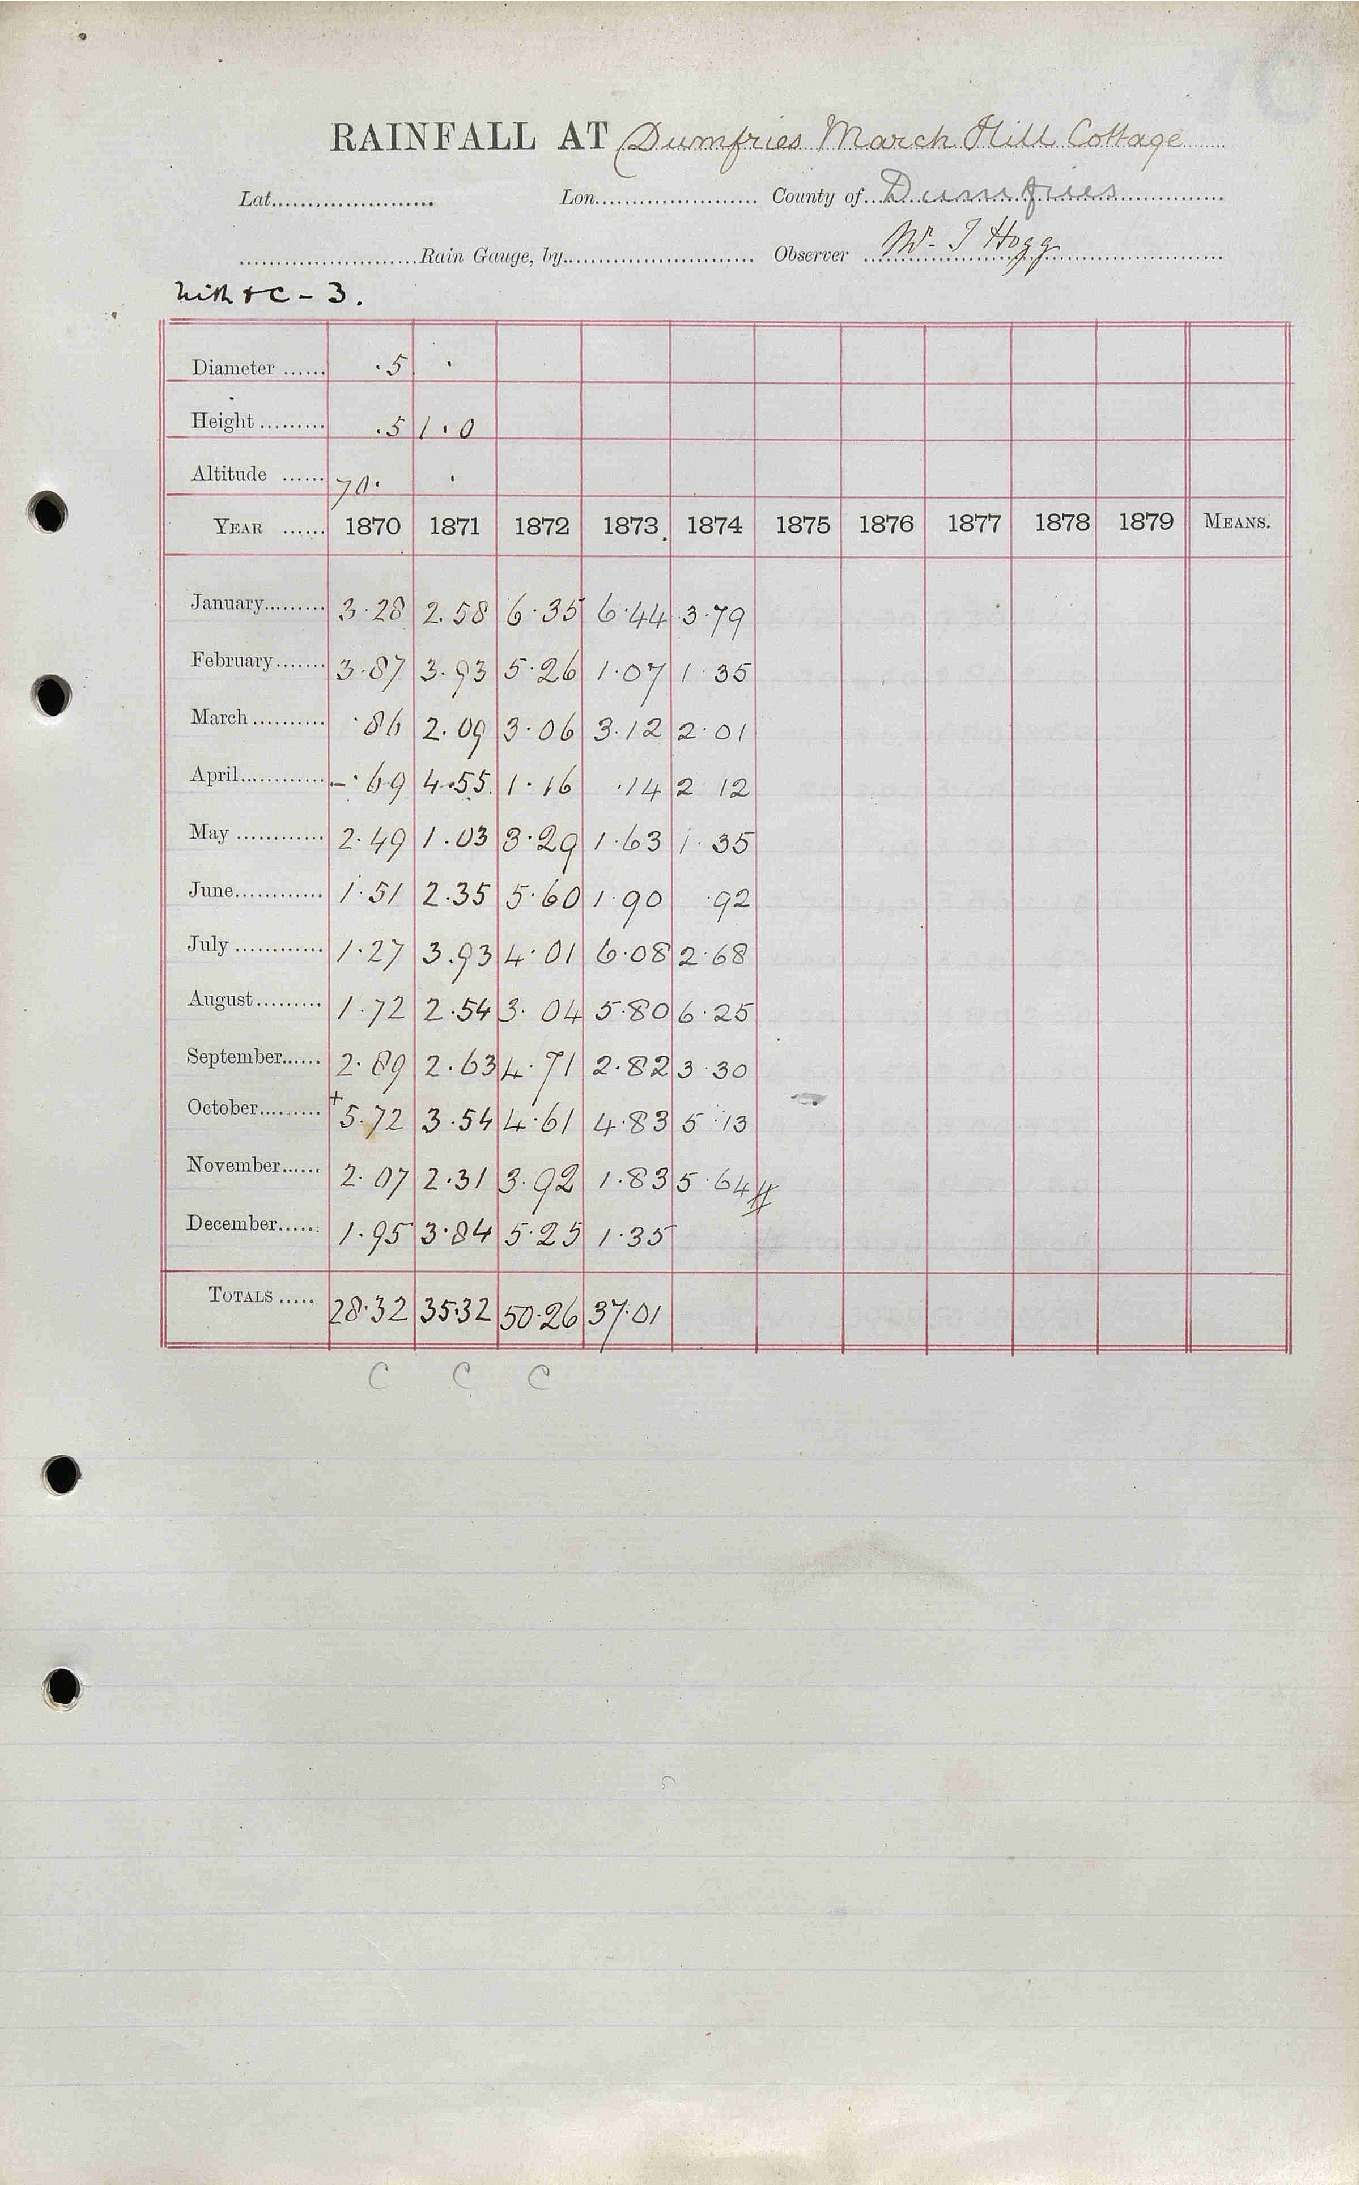 RAINFALL AT Dumfries March Hill Cottage
Lat...................... Lon...................... County of Dumfries
Rain Gauge, by...................... Observer Mr. J Hogg
Nith & C - 3.
Diameter ...... .5 .
Height ......... .5 1.0
Altitude ...... 70. .
YEAR ...... 1870 1871 1872 1873 1874 1875 1876 1877 1878 1879 MEANS.
January......... 3.28 2.58 6.35 6.44 3.79
February....... 3.87 3.93 5.26 1.07 1.35
March .......... .86 2.09 3.06 3.12 2.01
April............ - .69 4.55 1.16 .14 2 12
May ............ 2.49 1.03 3.29 1.63 1.35
June............ 1.51 2.35 5.60 1.90 .92
July ............ 1.27 3.93 4.01 6.08 2.68
August......... 1.72 2.54 3.04 5.80 6.25
September...... 2.89 2.63 4.71 2.82 3.30
October......... + 5.72 3.54 4.61 4.83 5.13
November...... 2.07 2.31 3.92 1.83 5.64 #
December...... 1.95 3.84 5.25 1.35
TOTALS ..... 28.32 35.32 50.26 37.01
C C C